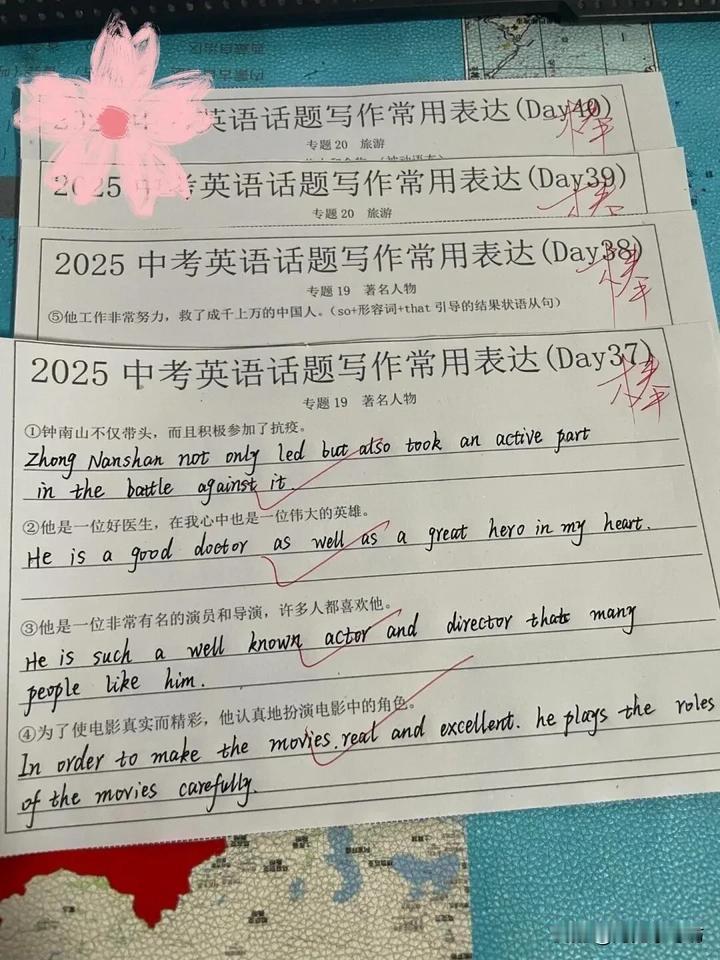 英语话题写作常用表达(Day40)
棒
专题 20 旅游
2025 中考英语话题写作常用表达(Day39)
棒
专题 20 旅游
2025 中考英语话题写作常用表达(Day38)
棒
专题 19 著名人物
⑤他工作非常努力，救了成千上万的中国人。(so+形容词+that 引导的结果状语从句)
2025 中考英语话题写作常用表达(Day37)
棒
专题 19 著名人物
①钟南山不仅带头，而且积极参加了抗疫。
Zhong Nanshan not only led but also took an active part
in the battle against it.
②他是一位好医生，在我心中也是一位伟大的英雄。
He is a good doctor as well as a great hero in my heart.
③他是一位非常有名的演员和导演，许多人都喜欢他。
He is such a well known actor and director that many
people like him.
④为了使电影真实而精彩，他认真地扮演电影中的角色。
In order to make the movies real and excellent. he plays the roles
of the movies carefully.